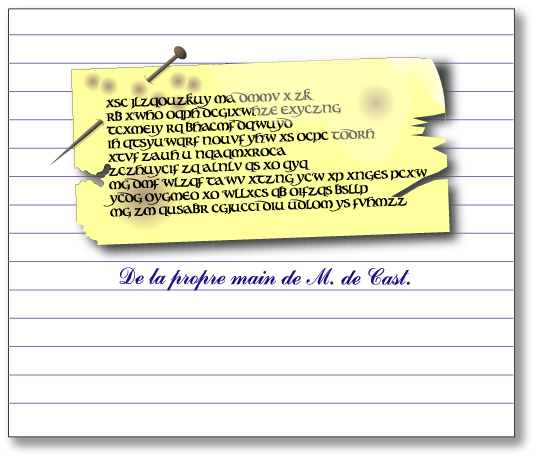 XSC JLZQOUZKUY MA DMMV X ZK
RB XWHO OQPH DCGIXWHZE EXYCZNG
TCXMEIY RQ BHACMF DQWUYD
IH QTSYUWQRF NOUVF YHW XS OCPC TODRH
XTVF ZAUH U NQAQMXROCA
ZCZHUYCIF ZQ ALNLV QS XO QYQ
MG DMF WLZQF TAWV XTZNG YCW XP XNGES PCXW
YCDG OYGMEO XO WLLXCS QB OIFZQS BSLLP
MG ZM QUSABR CGJUCCTDIU UDLOM YS FVHMZZ
De la propre main de M. de Cast.